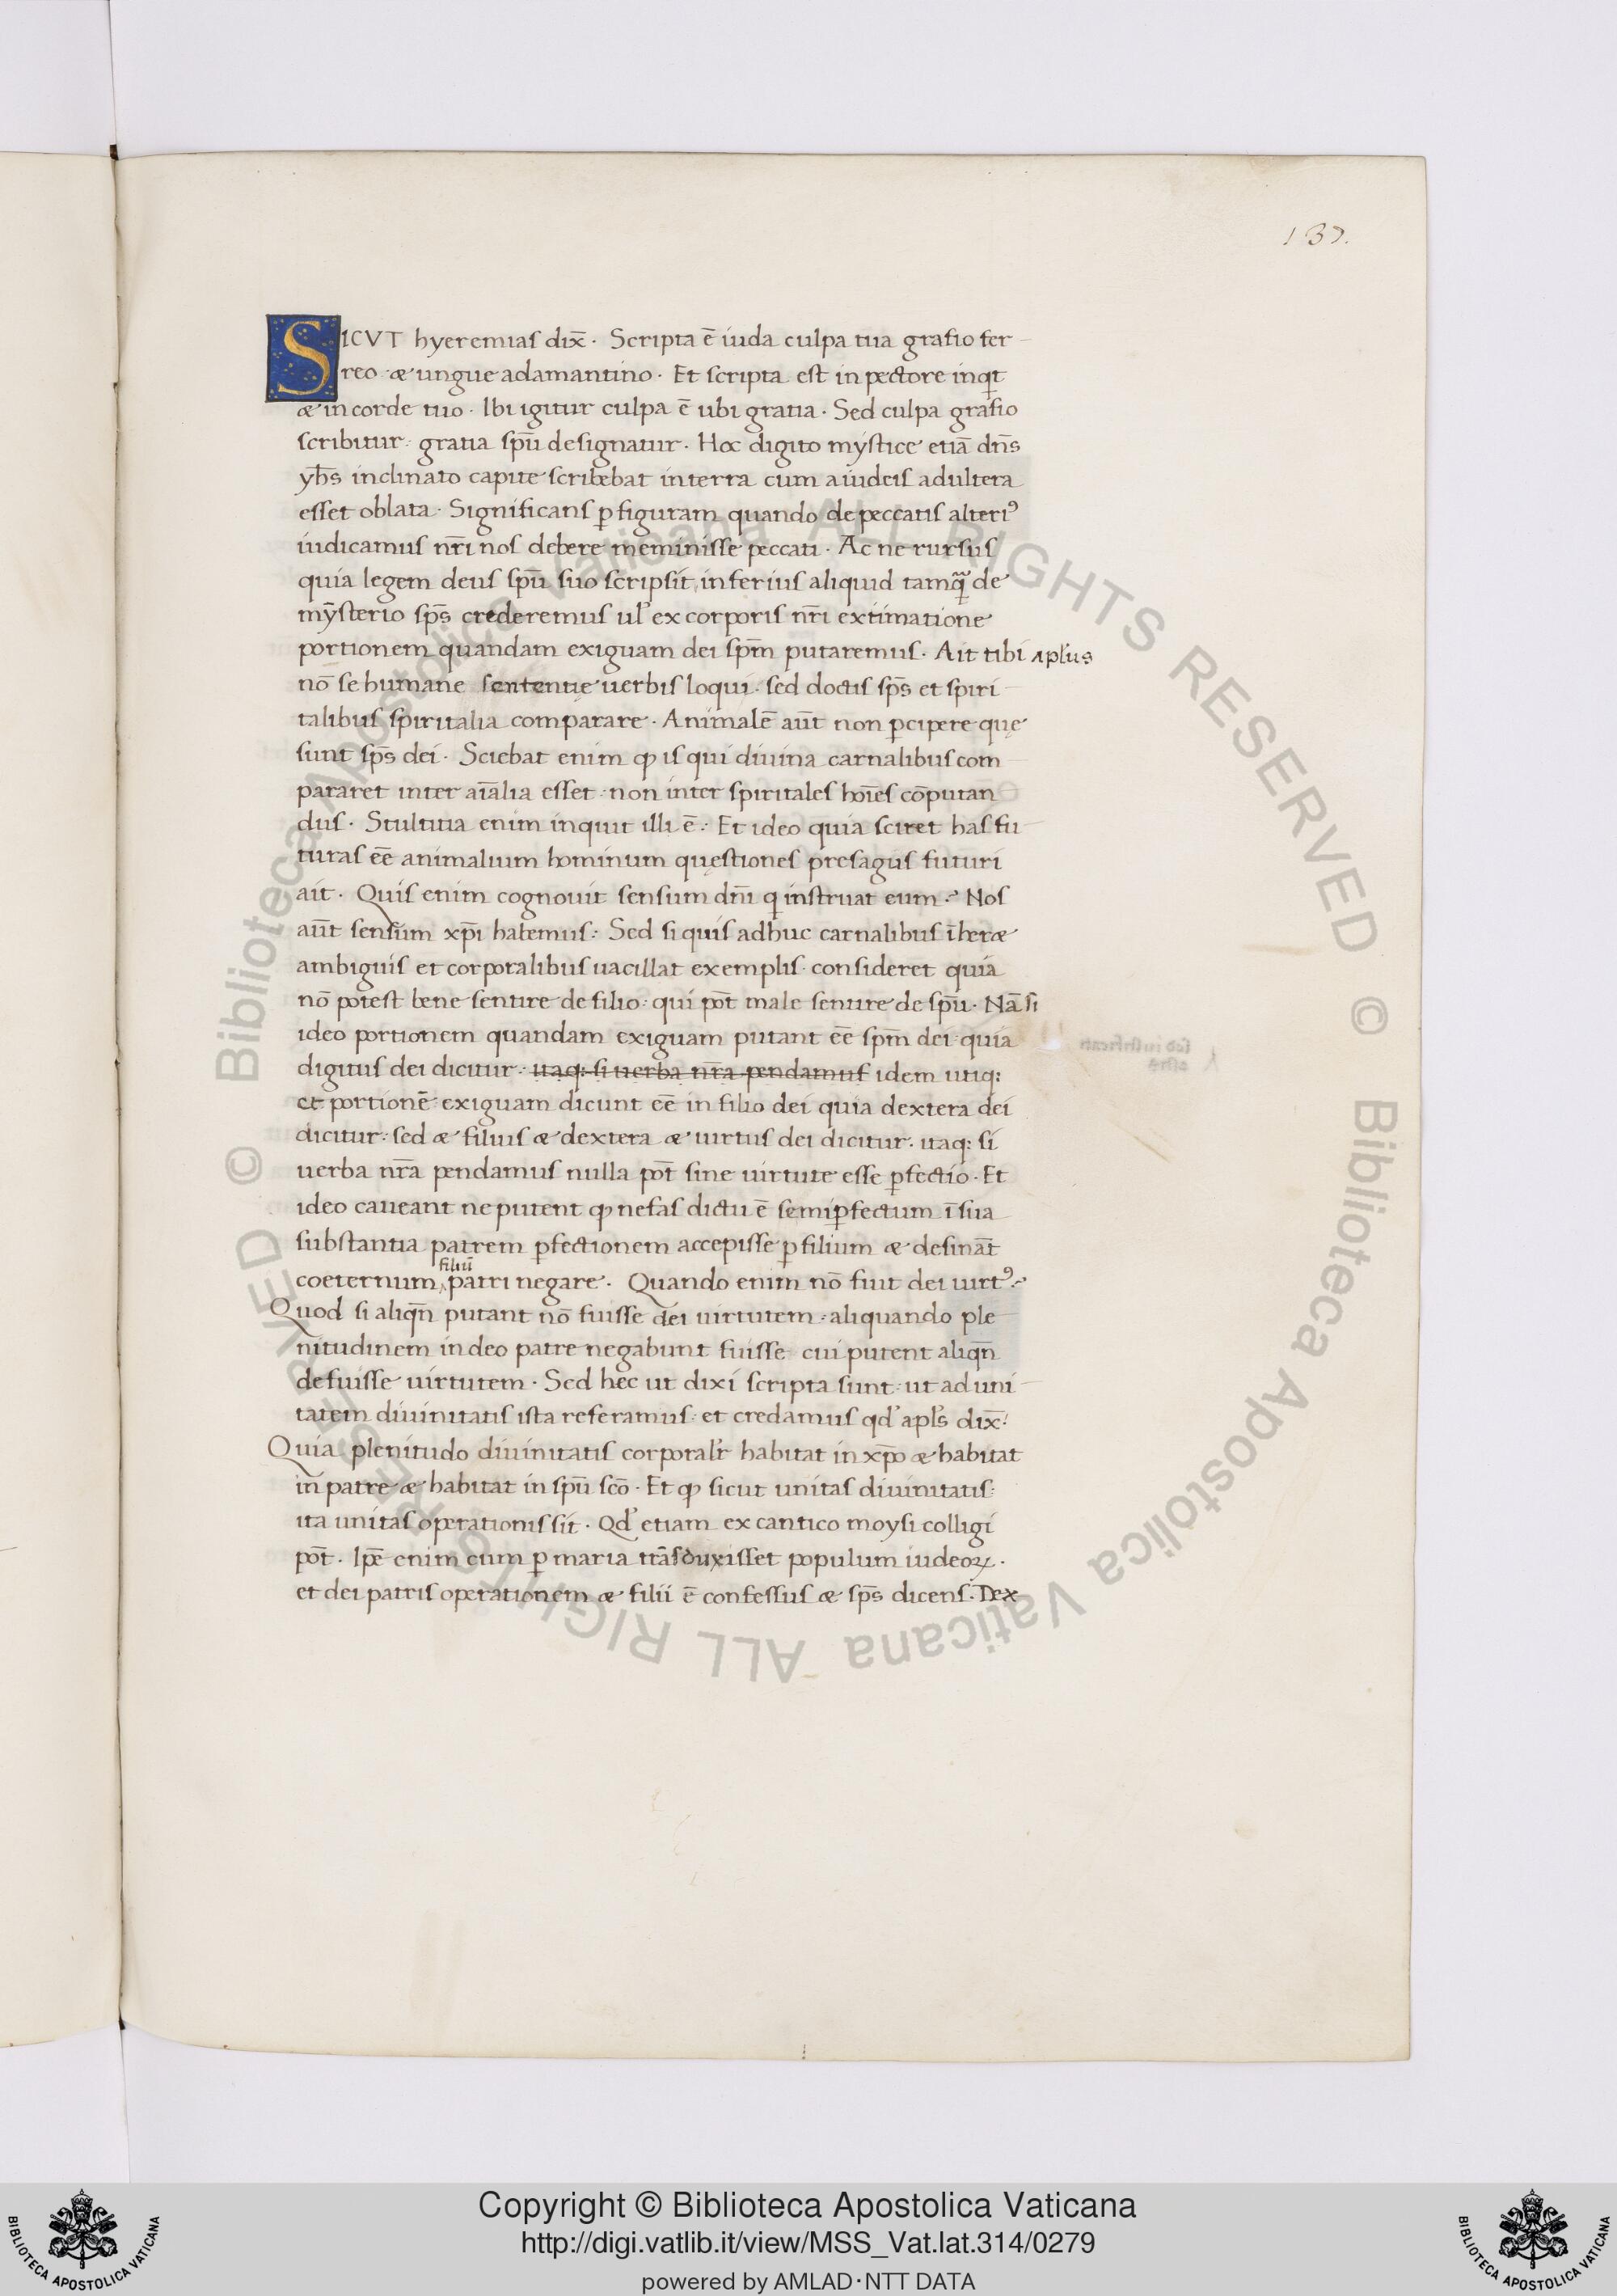 137.
SICVT hyeremias dix̄. Scripta ē iuda culpa tua grafio fer
reo æ ungue adamantino. Et scripta est in pectore inqt
æ in corde tuo. Ibi igitur culpa ē ubi gratia. Sed culpa grafio
scribitur: gratia spū designatur. Hoc digito mystice etiā dn̄s
yh̄s inclinato capite scribebat in terra cum a iudeis adultera
esset oblata. Significans p figuram quando de peccatis alteriꝰ
iudicamus nr̄i nos debere meminisse peccati. Ac ne rursus
quia legem deus spū suo scripsit, inferius aliquid tamq̄ de
mysterio sps̄ crederemus ul' ex corporis nr̄i extimatione
portionem quandam exiguam dei spm̄ putaremus. Ait tibi apl'us
nō se humane sententie uerbis loqui: sed doctis sps̄ et spiri
talibus spiritalia comparare. Animalē aūt non ꝑcipere que
sunt sps̄ dei. Sciebat enim ꝙ is qui diuina carnalibus com
pararet inter aīalia esset: non inter spiritales hoīes cōputan
dus. Stultitia enim inquit illi ē: Et ideo quia sciret has fu
turas eē animalium hominum questiones presagus futuri
ait. Quis enim cognouit sensum dn̄i q instruat eum? Nos
aūt sensum xp̄i habemus: Sed si quis adhuc carnalibus īheræ
ambiguis et corporalibus uacillat exemplis consideret quia
nō potest bene sentire de filio: qui pōt male sentire de spū. Nā si
ideo portionem quandam exiguam putant eē spm̄ dei quia
digitus dei dicitur: itaq: si uerba nr̄a pendamus idem utiq:
et portionē exiguam dicunt eē in filio dei quia dextera dei
dicitur: sed æ filius æ dextera æ uirtus dei dicitur. itaq: si
uerba nr̄a pendamus nulla pōt sine uirtute esse ꝑfectio. Et
ideo caueant ne putent ꝙ nefas dictu ē semiꝑfectum ī sua
substantia patrem ꝑfectionem accepisse ꝑ filium æ desināt
filiū
coeternum patri negare. Quando enim nō fuit dei uirtꝰ?
Quod si aliqn̄ putant nō fuisse dei uirtutem: aliquando ple
nitudinem in deo patre negabunt fuisse cui putent aliqn̄
defuisse uirtutem. Sed hec ut dixi scripta sunt: ut ad uni
tatem diuinitatis ista referamus: et credamus qd' apl's dix̄:
Quia plenitudo diuinitatis corporalr̄ habitat in xp̄o æ habitat
in patre æ habitat in spū scō. Et ꝙ sicut unitas diuinitatis:
ita unitas operationis sit. Qd' etiam ex cantico moysi colligi
pōt. Ipē enim cum ꝑ maria trāsduxisset populum iudeoꝝ.
et dei patris operationem æ filii ē confessus æ sps̄ dicens. Dex
© Biblioteca Apostolica Vaticana ALL RIGHTS RESERVED © Biblioteca Apostolica Vaticana ALL RIGHTS RESERVED
Copyright © Biblioteca Apostolica Vaticana
http://digi.vatlib.it/view/MSS_Vat.lat.314/0279
powered by AMLAD·NTT DATA
BIBLIOTECA APOSTOLICA VATICANA
BIBLIOTECA APOSTOLICA VATICANA